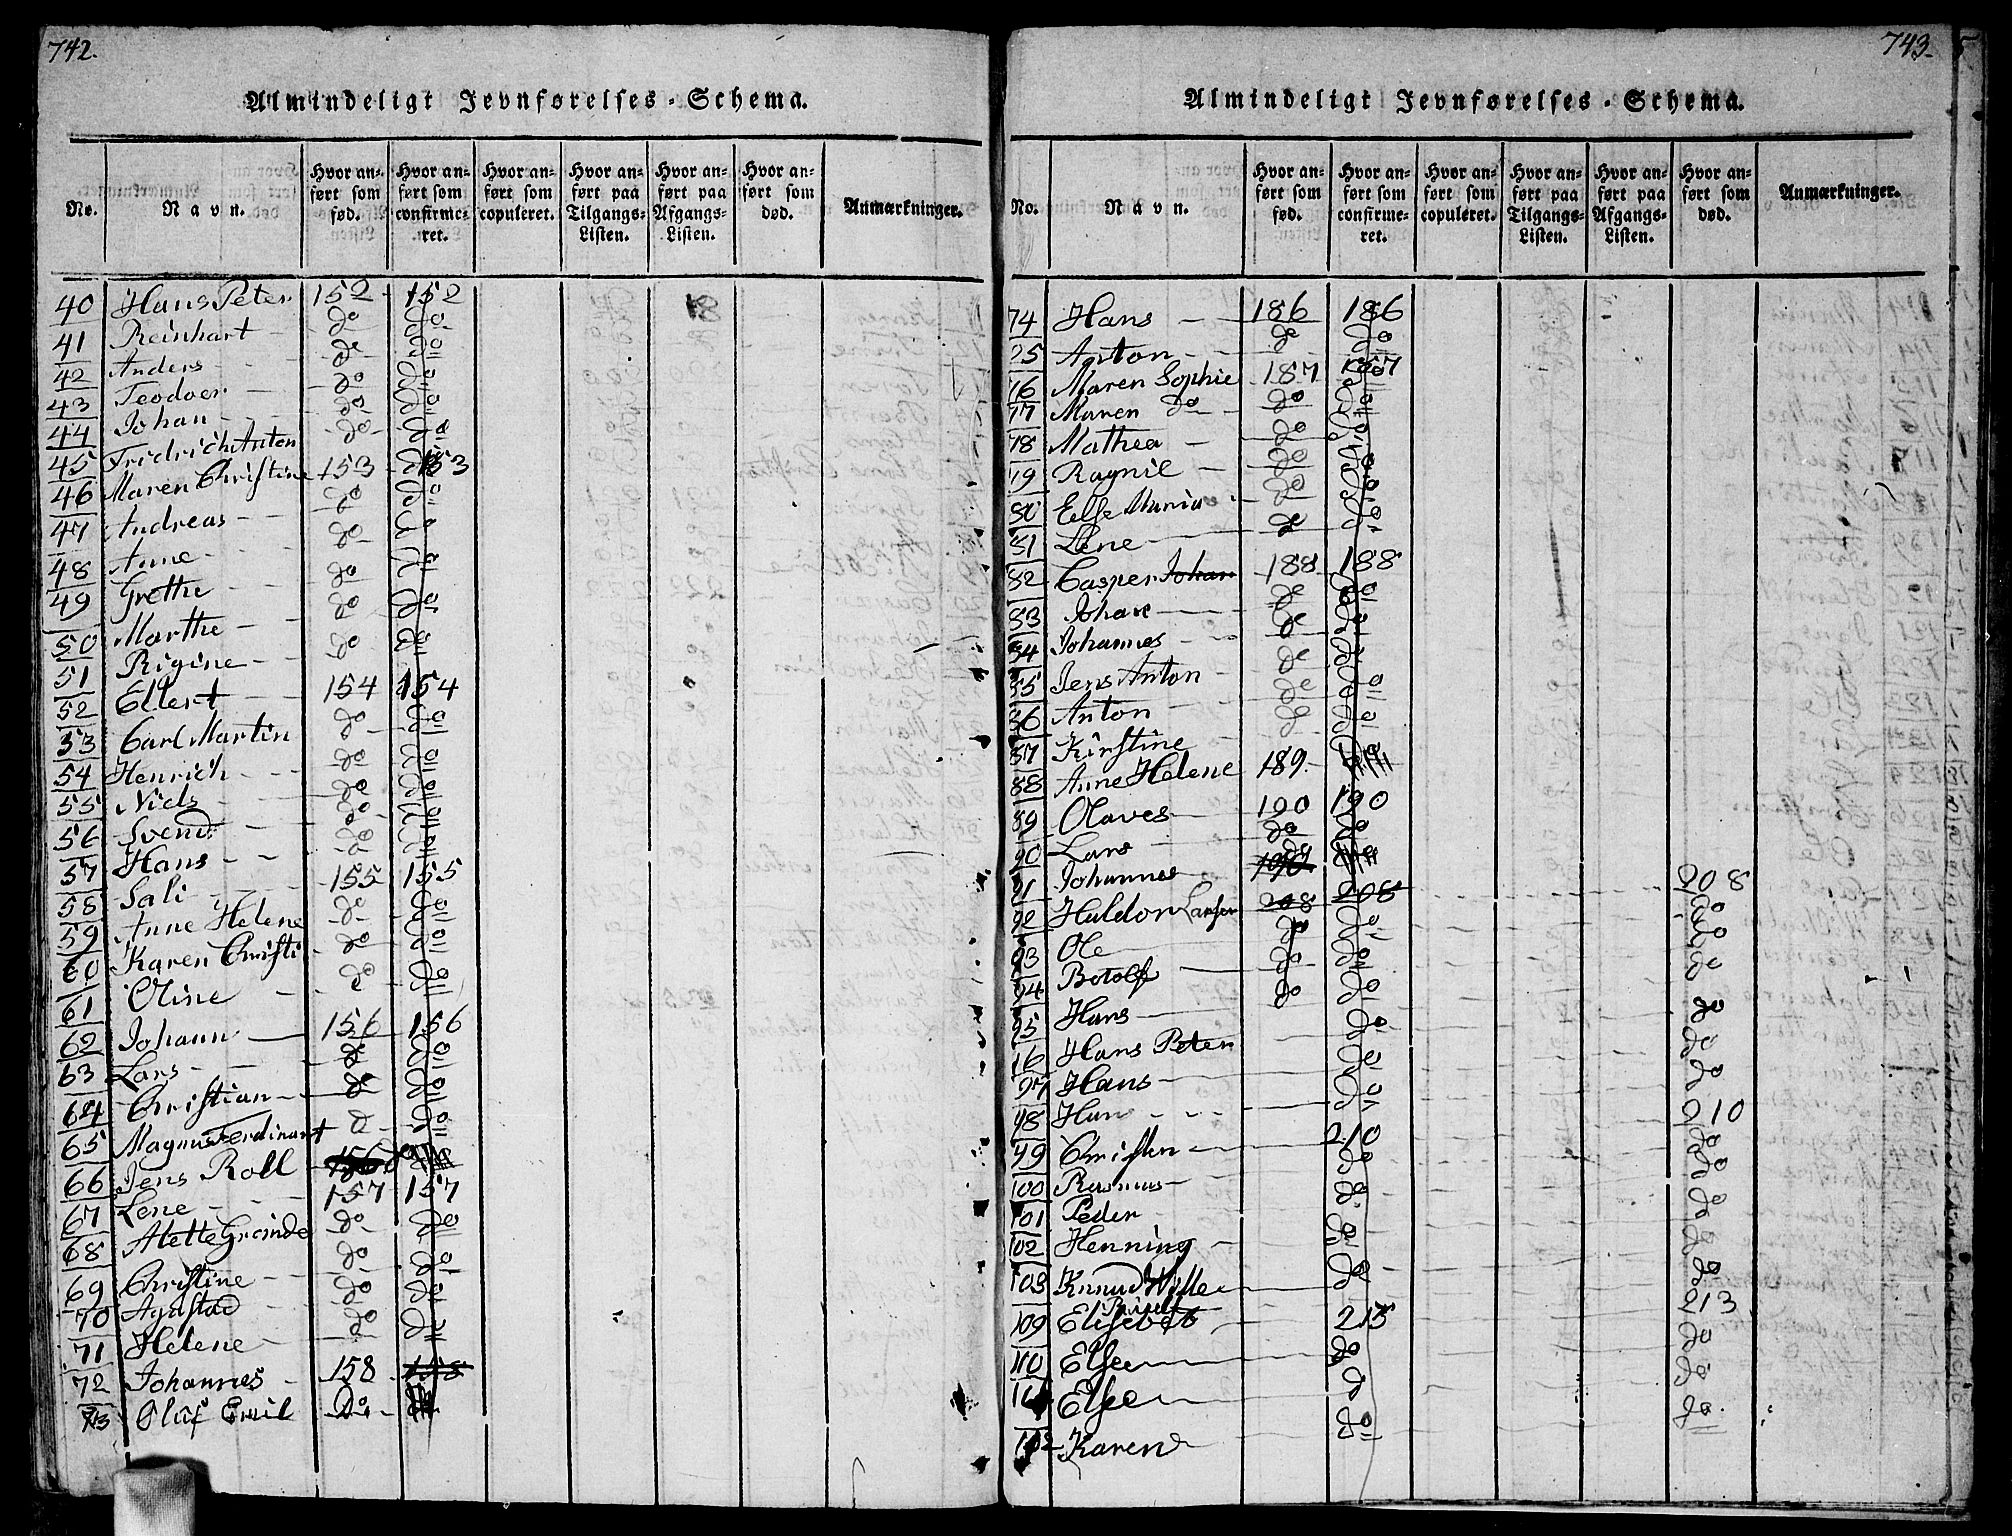 742.
Almindeligt Jevnførelses-Schema.
No. Navn. Hvor anført som fød. Hvor anført som confirmeret. Hvor anført som copuleret. Hvor anført paa Tilgangs-Listen. Hvor anført paa Afgangs-Listen. Hvor anført som død. Anmærkninger.
40 Hans Peter 152 152
41 Reinhart do do
42 Anders do do
43 Teodoer do do
44 Johan do do
45 Fridrich Anton do do
46 Maren Christine 153 153
47 Andreas do do
48 Anne do do
49 Grethe do do
50 Marthe do do
51 Rigine do do
52 Ellert 154 154
53 Carl Martin do do
54 Henrich do do
55 Niels do do
56 Svend do do
57 Hans do do
58 Sali 155 155
59 Anne Helene do do
60 Karen Christi do do
61 Oline do do
62 Johann 156 156
63 Lars do do
64 Christian do do
65 Magnus Ferdinant do do
66 Jens Roll 156 do
67 Lene 157 157
68 Alette do do
69 Christine do do
70 do do
71 Helene do do
72 Johannes 158 158
73 Oluf Emil do
743.
Almindeligt Jevnførelses-Schema.
No. Navn. Hvor anført som fød. Hvor anført som confirmeret. Hvor anført som copuleret. Hvor anført paa Tilgangs-Listen. Hvor anført paa Afgangs-Listen. Hvor anført som død. Anmærkninger.
74 Hans 186 186
75 Anton do do
76 Maren Sophie 187 187
77 Maren do do do
78 Mathea do do
79 Ragnil do do
80 Else Maria do do
81 Lene do do
82 Casper Johan 188 188
83 Johan do do
84 Johannes do do
85 Jens Anton do do
86 Anton do do
87 Kirstine do do
88 Anne Helene 189
89 Olaves 190 190
90 Lars do do
91 Johannes 190
92 Haldor Larsen 208 208 208
93 Ole do do do
94 Botolf do do do
95 Hans do do do
96 Hans Peter do do
97 Hans do do
98 Hans do do
99 Christen 210 210
100 Rasmus do do
101 Peder do do
102 Henning do do
103 Knud Wille do do
109 Elisebet 213 213
110 Else do do
Else do do
Karen do do